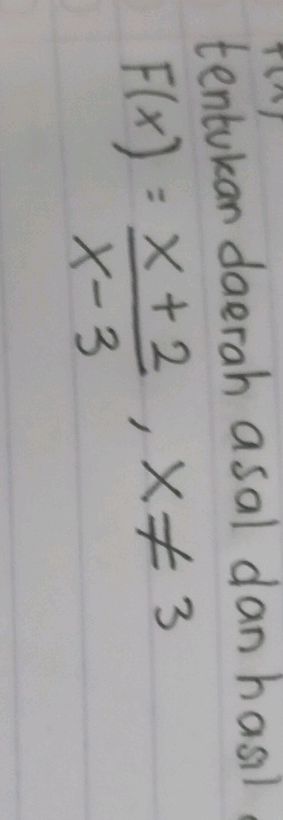 f(x)
tentukan daerah asal dan hasil
F(x) = x + 2 / x - 3 , x ≠ 3